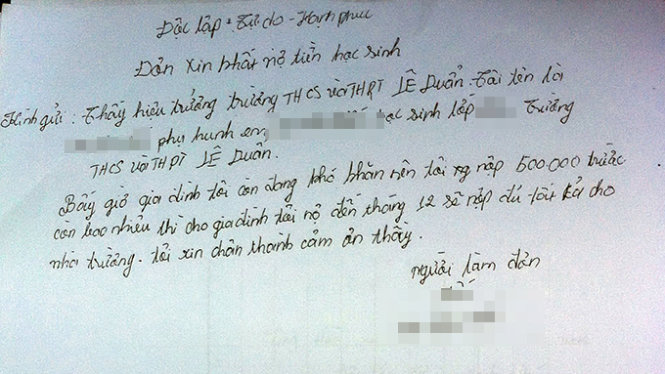 Độc lập - Tự do - Hạnh phúc
Đơn xin khất nợ tiền học sinh
Kính gửi: Thầy hiệu trưởng trường THCS và THPT LÊ Duẩn. Tôi tên là
phụ huynh em, học sinh lớp Trường
THCS và THPT LÊ Duẩn.
Bây giờ gia đình tôi còn đang khó khăn nên tôi nạp 500.000 trước
còn bao nhiêu thì cho gia đình tôi nợ đến tháng 12 sẽ nạp đủ tất cả cho
nhà trường. tôi xin chân thành cảm ơn thầy.
người làm đơn